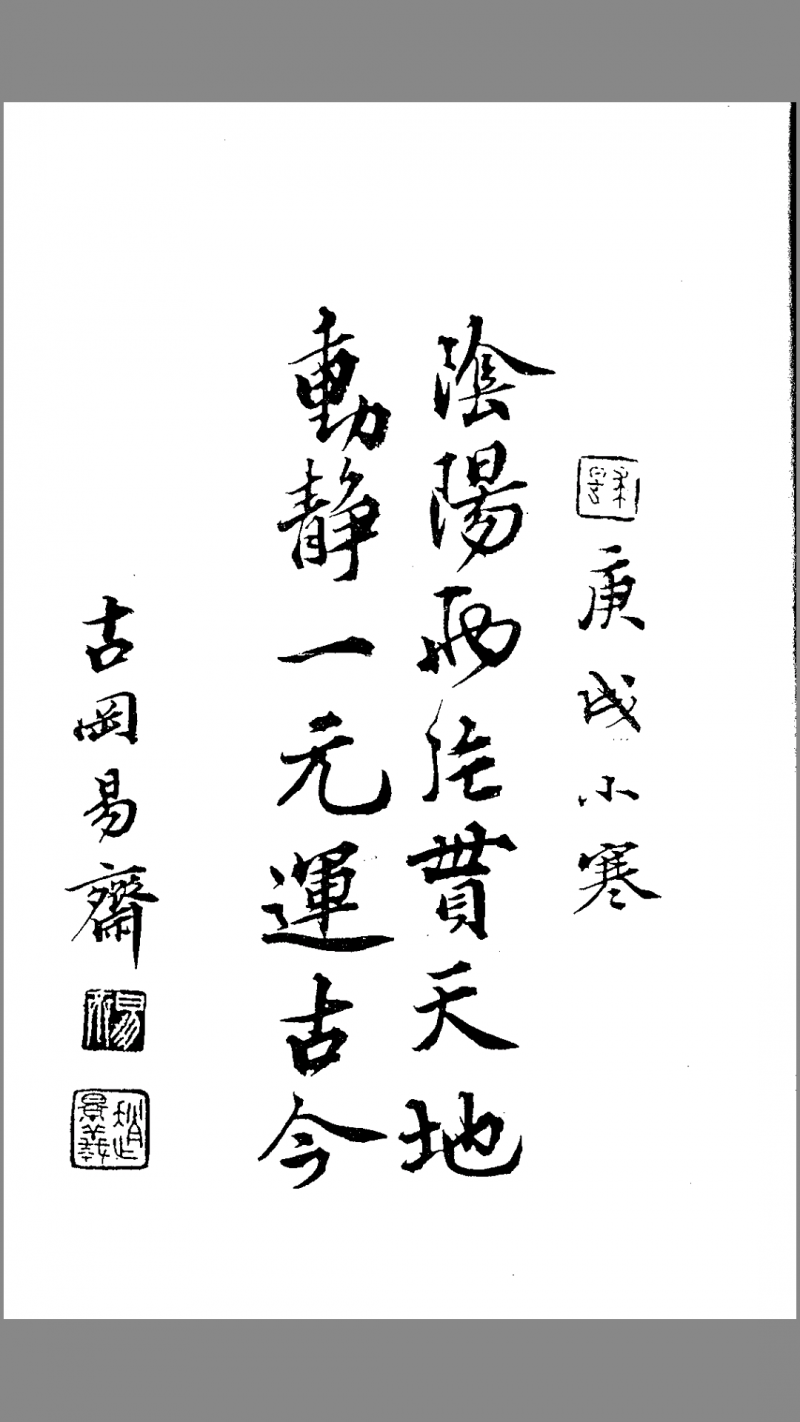 庚戌小寒
陰陽兩
貫天地
動靜一元運古今
古岡易齋
趙景羲